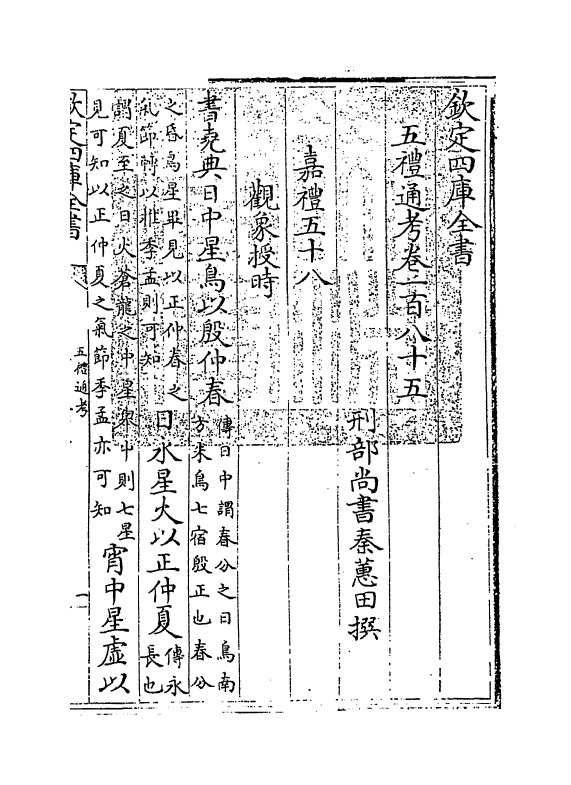 欽定四庫全書
五禮通考卷一百八十五
刑部尚書秦蕙田撰
嘉禮五十八
觀象授時
書堯典日中星鳥以殷仲春
傳日中謂春分之日鳥南
方朱鳥七宿殷正也春分
之昏鳥星畢見以正仲春之
氣節轉以推季孟則可知
日永星火以正仲夏
傳永
長也
謂夏至之日火蒼龍之中星舉中則七星
見可知以正仲夏之氣節季孟亦可知
宵中星虛以
欽定四庫全書
五禮通考
一